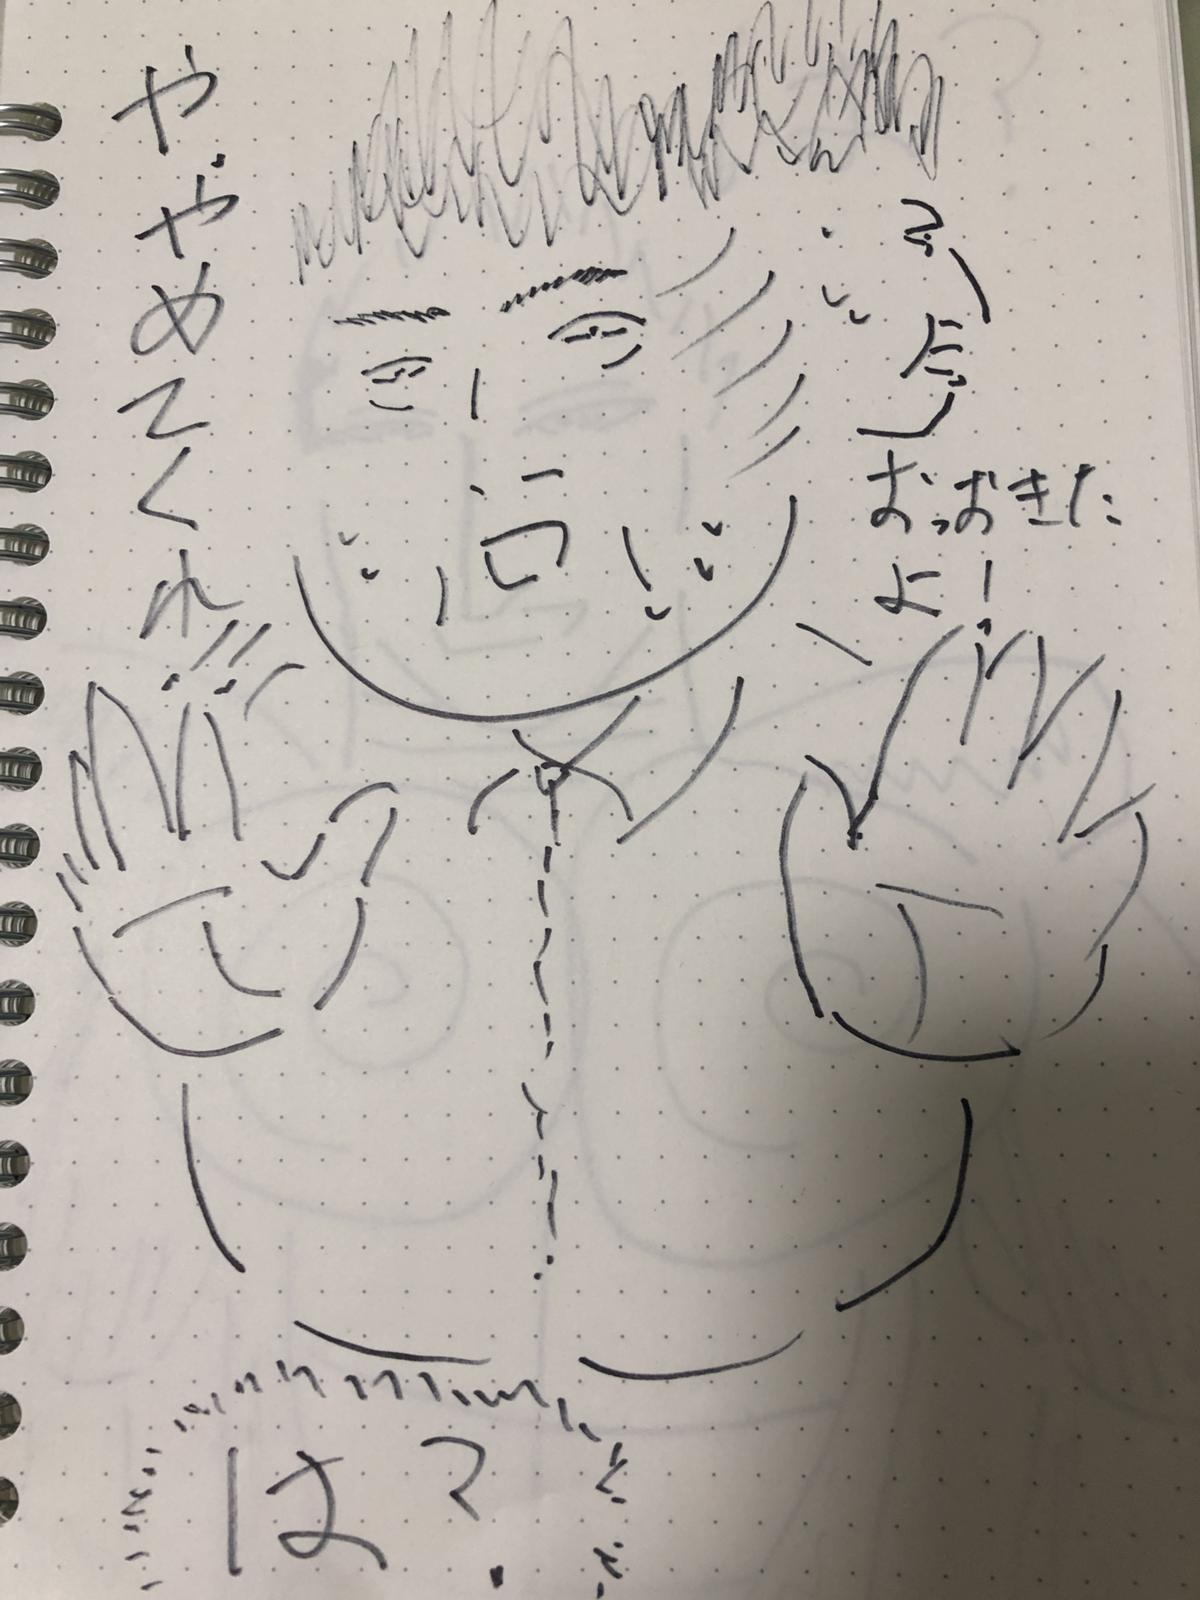 や、やめてくれ!!
お、おきた
よ!
は?